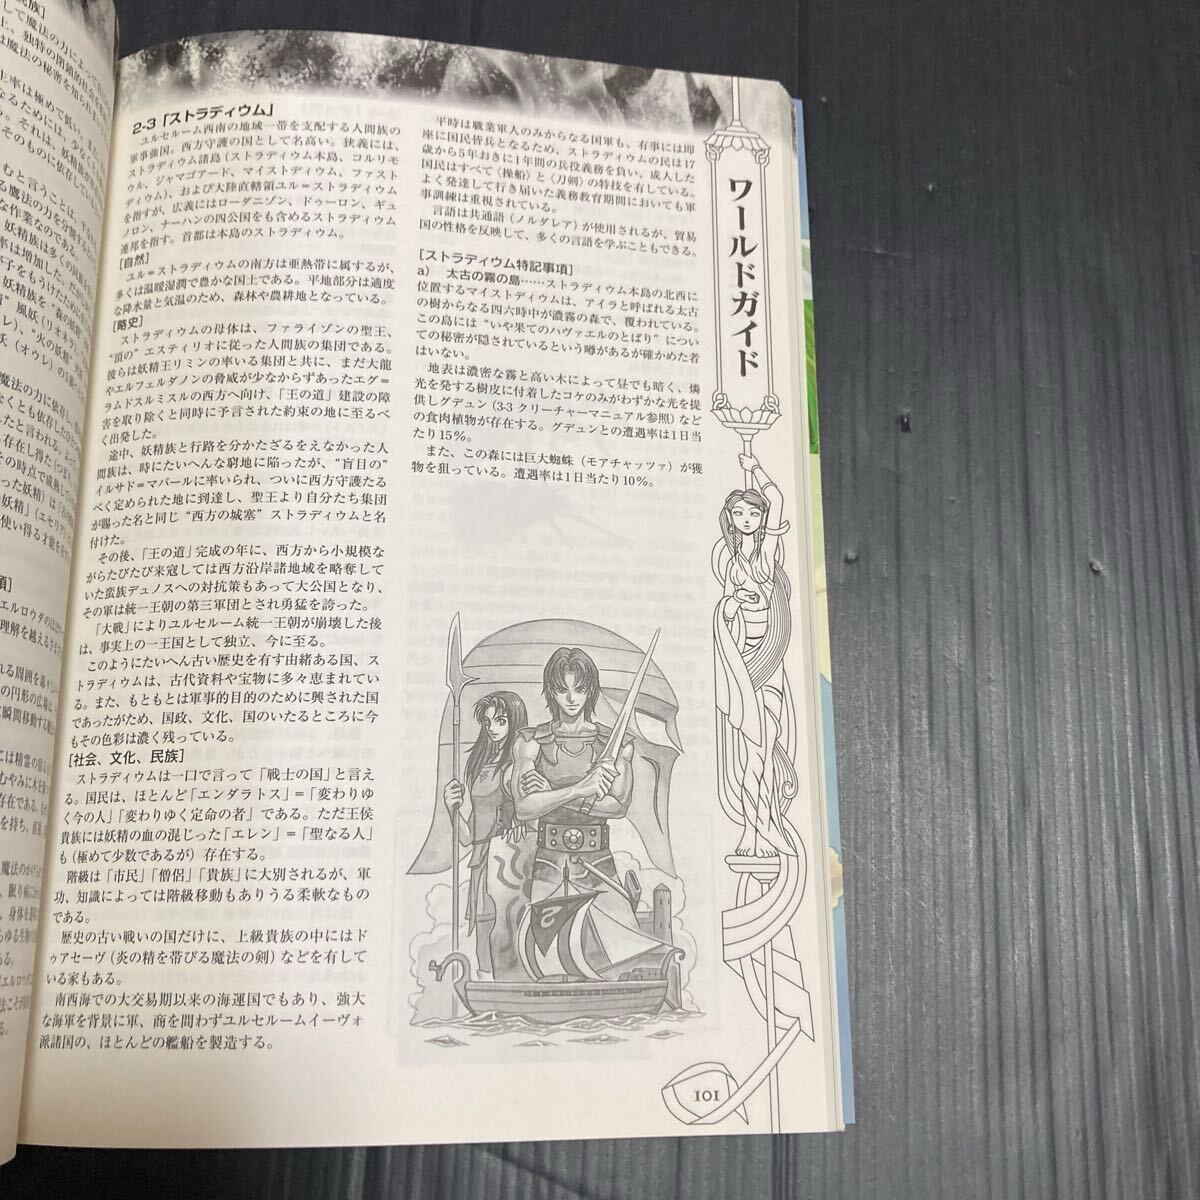 2-3「ストラディウム」
ユルセルーム西南の地域一帯を支配する人間族の
軍事強国。西方守護の国として名高い。狭義には、
ストラディウム諸島（ストラディウム本島、コルリモ
ウル、ジャマゴアード、マイストディウム、ファスト
ディウム）、および大陸直轄領ユル＝ストラディウム
を指すが、広義にはローダニゾン、ドゥーロン、ギュ
ノロン、ナーハンの四公国をも含めるストラディウム
連邦を指す。首都は本島のストラディウム。
[自然]
ユル＝ストラディウムの南方は亜熱帯に属するが、
多くは温暖湿潤で豊かな国土である。平地部分は適度
な降水量と気温のため、森林や農耕地となっている。
[略史]
ストラディウムの母体は、ファライゾンの聖王、
“頂の”エスティリオに従った人間族の集団である。
彼らは妖精王リミンの率いる集団と共に、まだ大龍
やエルフェルダノンの脅威が少なからずあったエグ＝
ラムドスルミスルの西方へ向け、「王の道」建設の障
害を取り除くと同時に予言された約束の地に至るべ
く出発した。
途中、妖精族と行路を分かたざるをえなかった人
間族は、時にたいへんな窮地に陥ったが、“盲目の”
イルサド＝マバールに率いられ、ついに西方守護たる
べく定められた地に到達し、聖王より自分たち集団
が賜った名と同じ“西方の城塞”ストラディウムと名
付けた。
その後、「王の道」完成の年に、西方から小規模な
がらたびたび来寇しては西方沿岸諸地域を略奪して
いた蛮族デュノスへの対抗策もあって大公国となり、
その軍は統一王朝の第三軍団とされ勇猛を誇った。
「大戦」によりユルセルーム統一王朝が崩壊した後
は、事実上の一王国として独立、今に至る。
このようにたいへん古い歴史を有す由緒ある国、ス
トラディウムは、古代資料や宝物に多々恵まれてい
る。また、もともとは軍事的目的のために興された国
であったがため、国政、文化、国のいたるところに今
もその色彩は濃く残っている。
[社会、文化、民族]
ストラディウムは一口で言って「戦士の国」と言え
る。国民は、ほとんど「エンダラトス」＝「変わりゆ
く今の人」「変わりゆく定命の者」である。ただ王侯
貴族には妖精の血の混じった「エレン」＝「聖なる人」
も（極めて少数であるが）存在する。
階級は「市民」「僧侶」「貴族」に大別されるが、軍
功、知識によっては階級移動もありうる柔軟なもの
である。
歴史の古い戦いの国だけに、上級貴族の中にはド
ゥアセーヴ（炎の精を帯びる魔法の剣）などを有して
いる家もある。
南西海での大交易期以来の海運国でもあり、強大
な海軍を背景に軍、商を問わずユルセルームイーヴォ
派諸国の、ほとんどの艦船を製造する。
平時は職業軍人のみからなる国軍も、有事には即
座に国民皆兵となるため、ストラディウムの民は17
歳から5年おきに1年間の兵役義務を負い、成人した
国民はすべて〈操船〉と〈刀剣〉の特技を有している。
よく発達して行き届いた義務教育期間においても軍
事訓練は重視されている。
言語は共通語（ノルダレア）が使用されるが、貿易
国の性格を反映して、多くの言語を学ぶこともできる。
[ストラディウム特記事項]
a） 太古の霧の島……ストラディウム本島の北西に
位置するマイストディウムは、アイラと呼ばれる太古
の樹からなる四六時中が濃霧の森で、覆われている。
この島には“いや果てのハヴァエルのとばり”につい
ての秘密が隠されているという噂があるが確かめた者
はいない。
地表は濃密な霧と高い木によって昼でも暗く、燐
光を発する樹皮に付着したコケのみがわずかな光を提
供しグデュン（3-3 クリーチャーマニュアル参照）など
の食肉植物が存在する。グデュンとの遭遇率は1日当
たり15％。
また、この森には巨大蜘蛛（モアチャッツァ）が獲
物を狙っている。遭遇率は1日当たり10％。
ワールドガイド
101